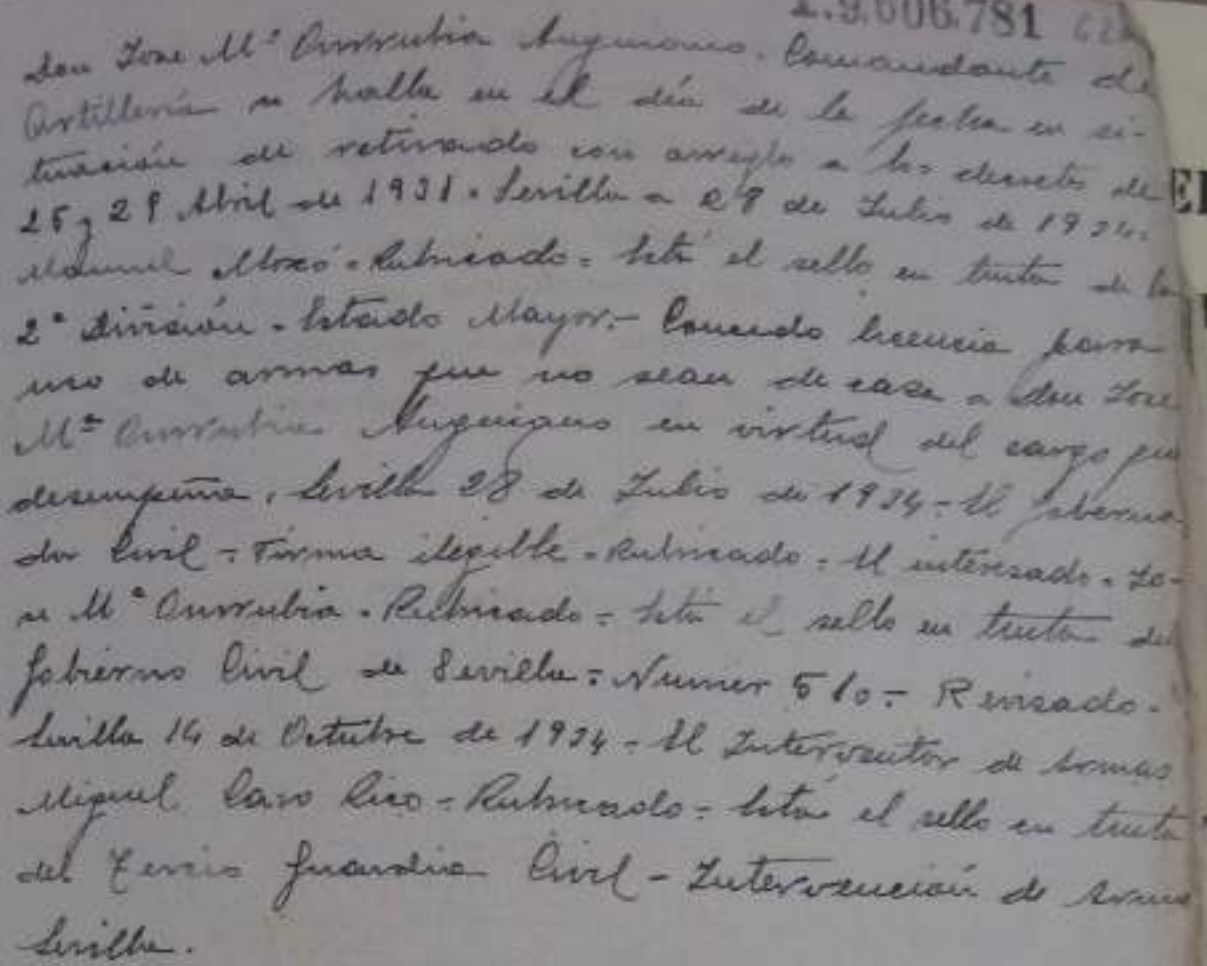 1.9.606.781
don Jose Mª Ourrubia Anguiano. Comandante de
Artillería se halla en el día de la fecha en si-
tuación de retirado con arreglo a los decretos de
25 y 29 Abril de 1931. Sevilla a 28 de Julio de 1934.
Manuel - Rubricado = Está el sello en tinta de la
2ª División - Estado Mayor.- Concedo licencia para
uso de armas que no sean de caza a don Jose
Mª Ourrubia Anguiano en virtud del cargo que
desempeña, Sevilla 28 de Julio de 1934 - El Goberna
dor Civil - Firma ilegible - Rubricado. El interesado - Jo-
se Mª Ourrubia - Rubricado = Está el sello en tinta del
Gobierno Civil de Sevilla = Numer 510 - Revisado -
Sevilla 14 de Octubre de 1934 - El Interventor de Armas
Miguel Caro - Rubricado = Está el sello en tinta
del Tercio Guardia Civil - Intervención de Armas
Sevilla.